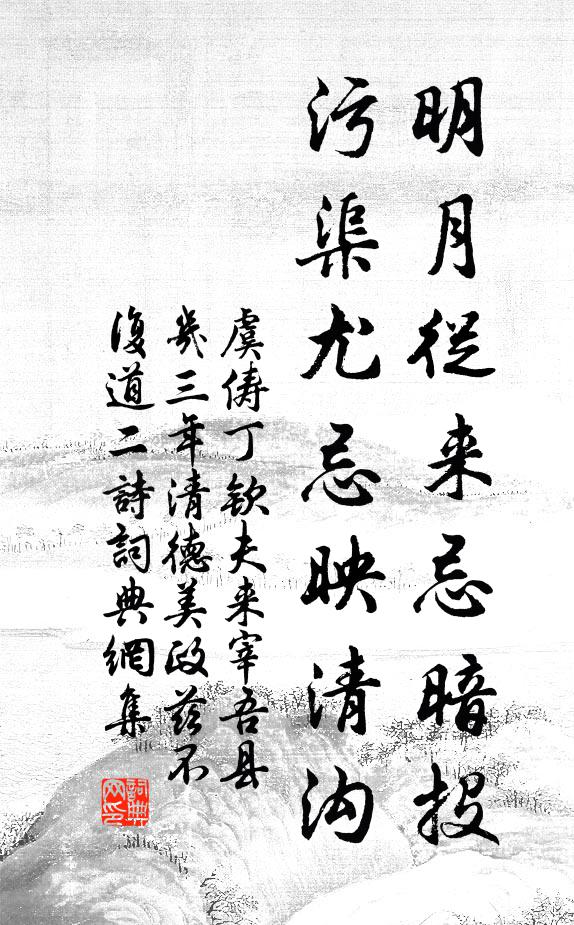 明月從来忌暗投
污渠尤忌映清沟
虞儔丁欽夫来宰吾县
幾三年清德美政茲不
復道二詩詞典網集
詞典网印